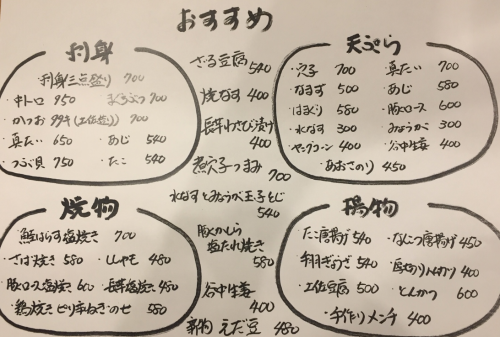 おすすめ
刺身
刺身三点盛り 700
・中トロ 950 まぐろぶつ 700
・かつお タタキ(土佐造り) 700
・真だい 650 ・あじ 540
・つぶ貝 750 ・たこ 540
ざる豆腐 540
焼なす 400
長芋わさび漬け 400
煮穴子つまみ 700
水なすとみょうが玉子とじ 540
豚かしら塩たれ焼き 580
谷中生姜 400
新物 えだ豆 480
天ぷら
・穴子 700 ・真だい 700
・なまず 500 ・あじ 580
・はまぐり 580 ・豚ロース 600
・水なす 300 ・みょうが 300
・ヤングコーン 400 ・谷中生姜 400
・あおさのり 450
焼物
・鮭はらす塩焼き 700
・さば焼き 580 ・ししゃも 480
・豚ロース塩焼き 600 ・長芋塩焼き 480
・鶏焼き ピリ辛ねぎのせ 580
揚物
・たこ唐揚げ 540 ・なんこつ唐揚げ 450
・手羽ぎょうざ 540
・土佐豆腐 500 ・とんかつ 600
・手作りメンチ 400